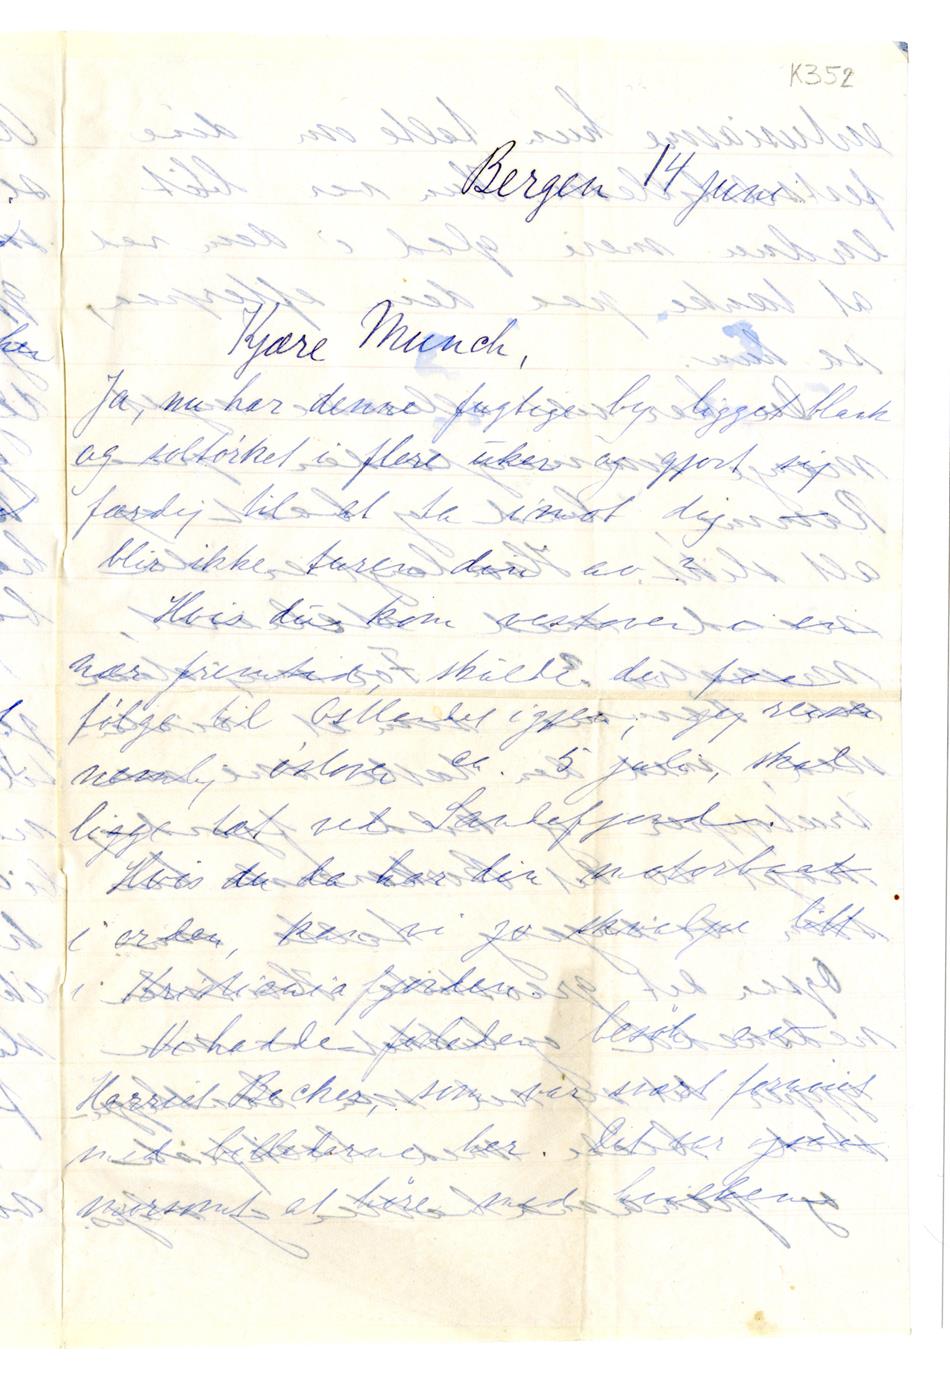 K352
Bergen 14 juni
Kjære Munch,
Ja, nu har denne fugtige by ligget blank
og soltørket i flere uker og gjort sig
færdig til at ta imot dig
blir ikke turen din av?
Hvis du kom vestover i en
nær fremtid, skulde du faa
følge til Østlandet igjen, jeg reiser
nemlig østover ca. 5 juli, skal
ligge tæt ved Sandefjord.
Hvis du da har din motorbaat
i orden, kan vi jo litt
i Kristianiafjorden
Vi hadde besøk av
Harriet Backer, som var svært fornøiet
med billederne her. Det var
morsomt at høre med hvilken